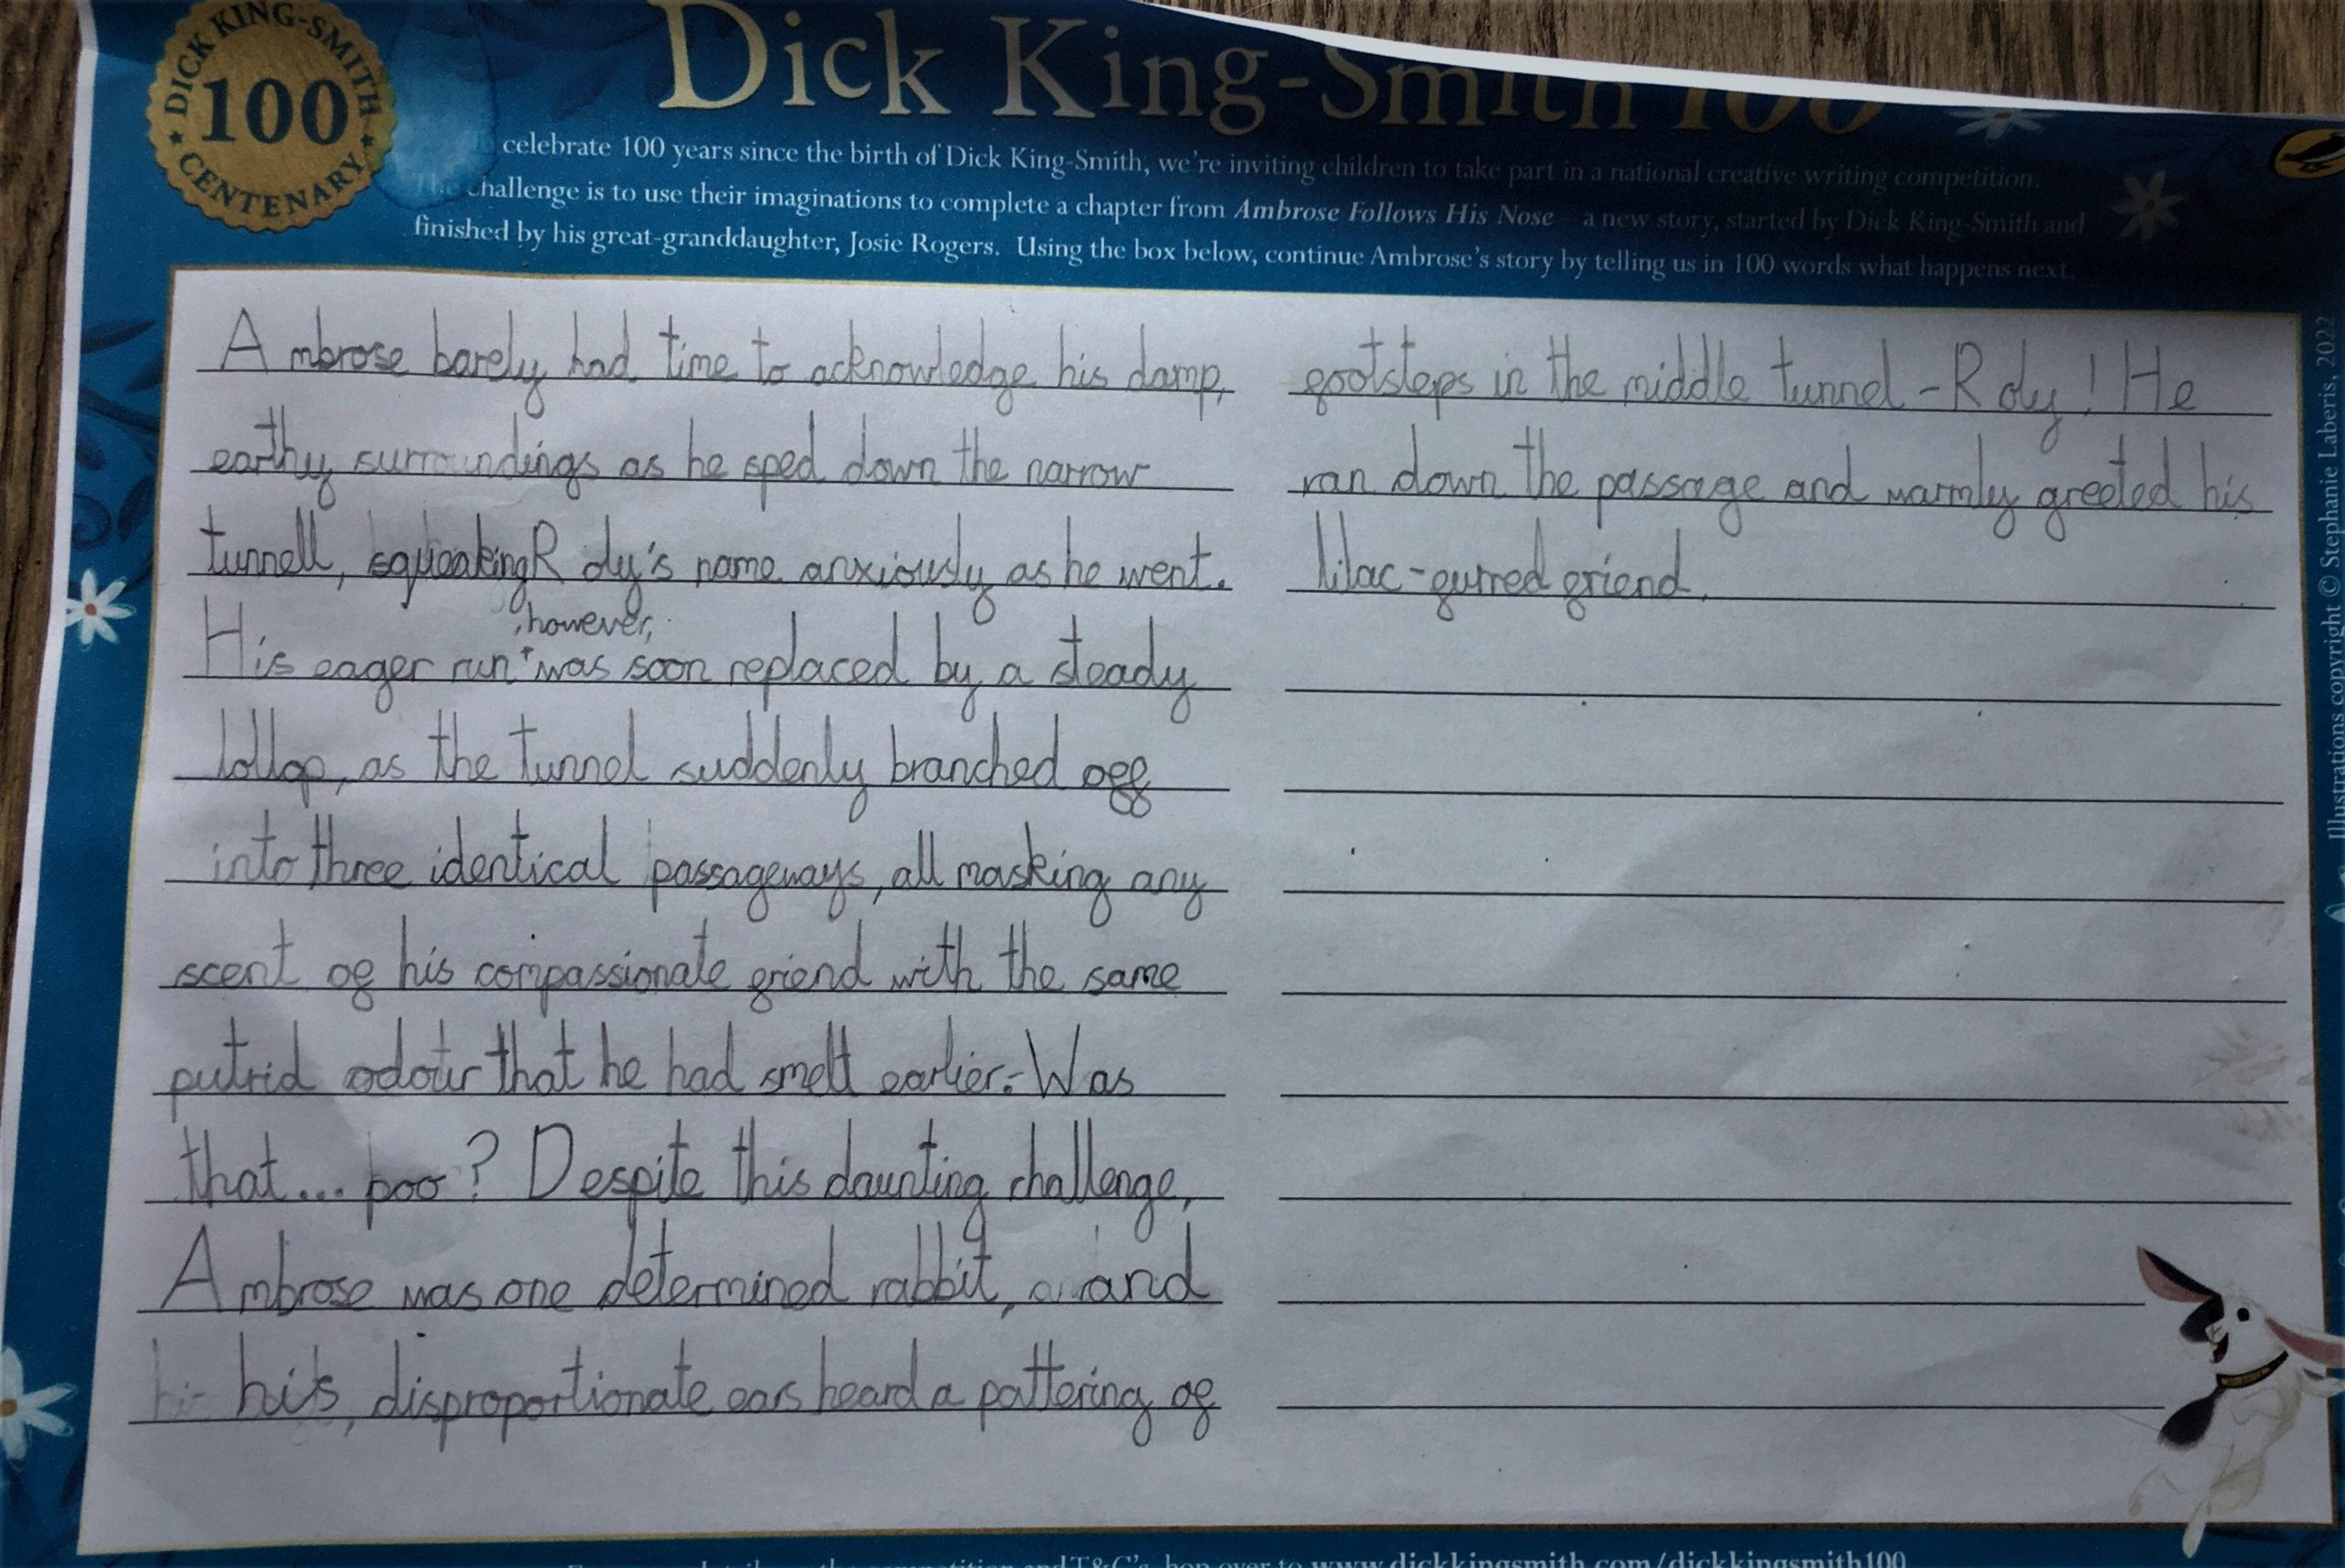 DICK KING-SMITH
100
CENTENARY
Dick King-Smith 100
celebrate 100 years since the birth of Dick King-Smith, we're inviting children to take part in a national creative writing competition.
The challenge is to use their imaginations to complete a chapter from Ambrose Follows His Nose – a new story, started by Dick King-Smith and
finished by his great-granddaughter, Josie Rogers. Using the box below, continue Ambrose's story by telling us in 100 words what happens next.
Ambrose barely had time to acknowledge his damp,
earthy surroundings as he sped down the narrow
tunnell, squeaking Roly's name anxiously as he went.
, however,
His eager run was soon replaced by a steady
lollop, as the tunnel suddenly branched off
into three identical passageways, all masking any
scent of his compassionate friend with the same
putrid odour that he had smelt earlier. - Was
that... poo? Despite this daunting challenge,
Ambrose was one determined rabbit, and
his, disproportionate ears heard a pattering of
footsteps in the middle tunnel - Roly! He
ran down the passage and warmly greeted his
lilac-furred friend.
Illustrations copyright © Stephanie Laberis, 2022
and T&C's, hop over to www.dickkingsmith.com/dickkingsmith100